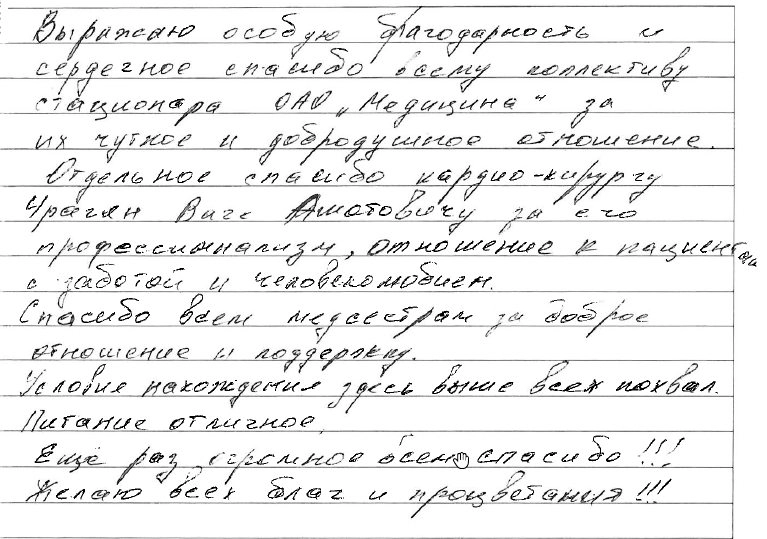 Выражаю особую благодарность и
сердечное спасибо всему коллективу
стационара ОАО „Медицина“ за
их чуткое и добродушное отношение.
Отдельное спасибо кардио-хирургу
Ваге Амотовичу за его
профессионализм, отношение к пациентам
с заботой и человеколюбием.
Спасибо всем медсестрам за доброе
отношение и поддержку.
Условия нахождения здесь выше всех похвал.
Питание отличное.
Ещё раз огромное всем спасибо!!!
Желаю всех благ и процветания!!!